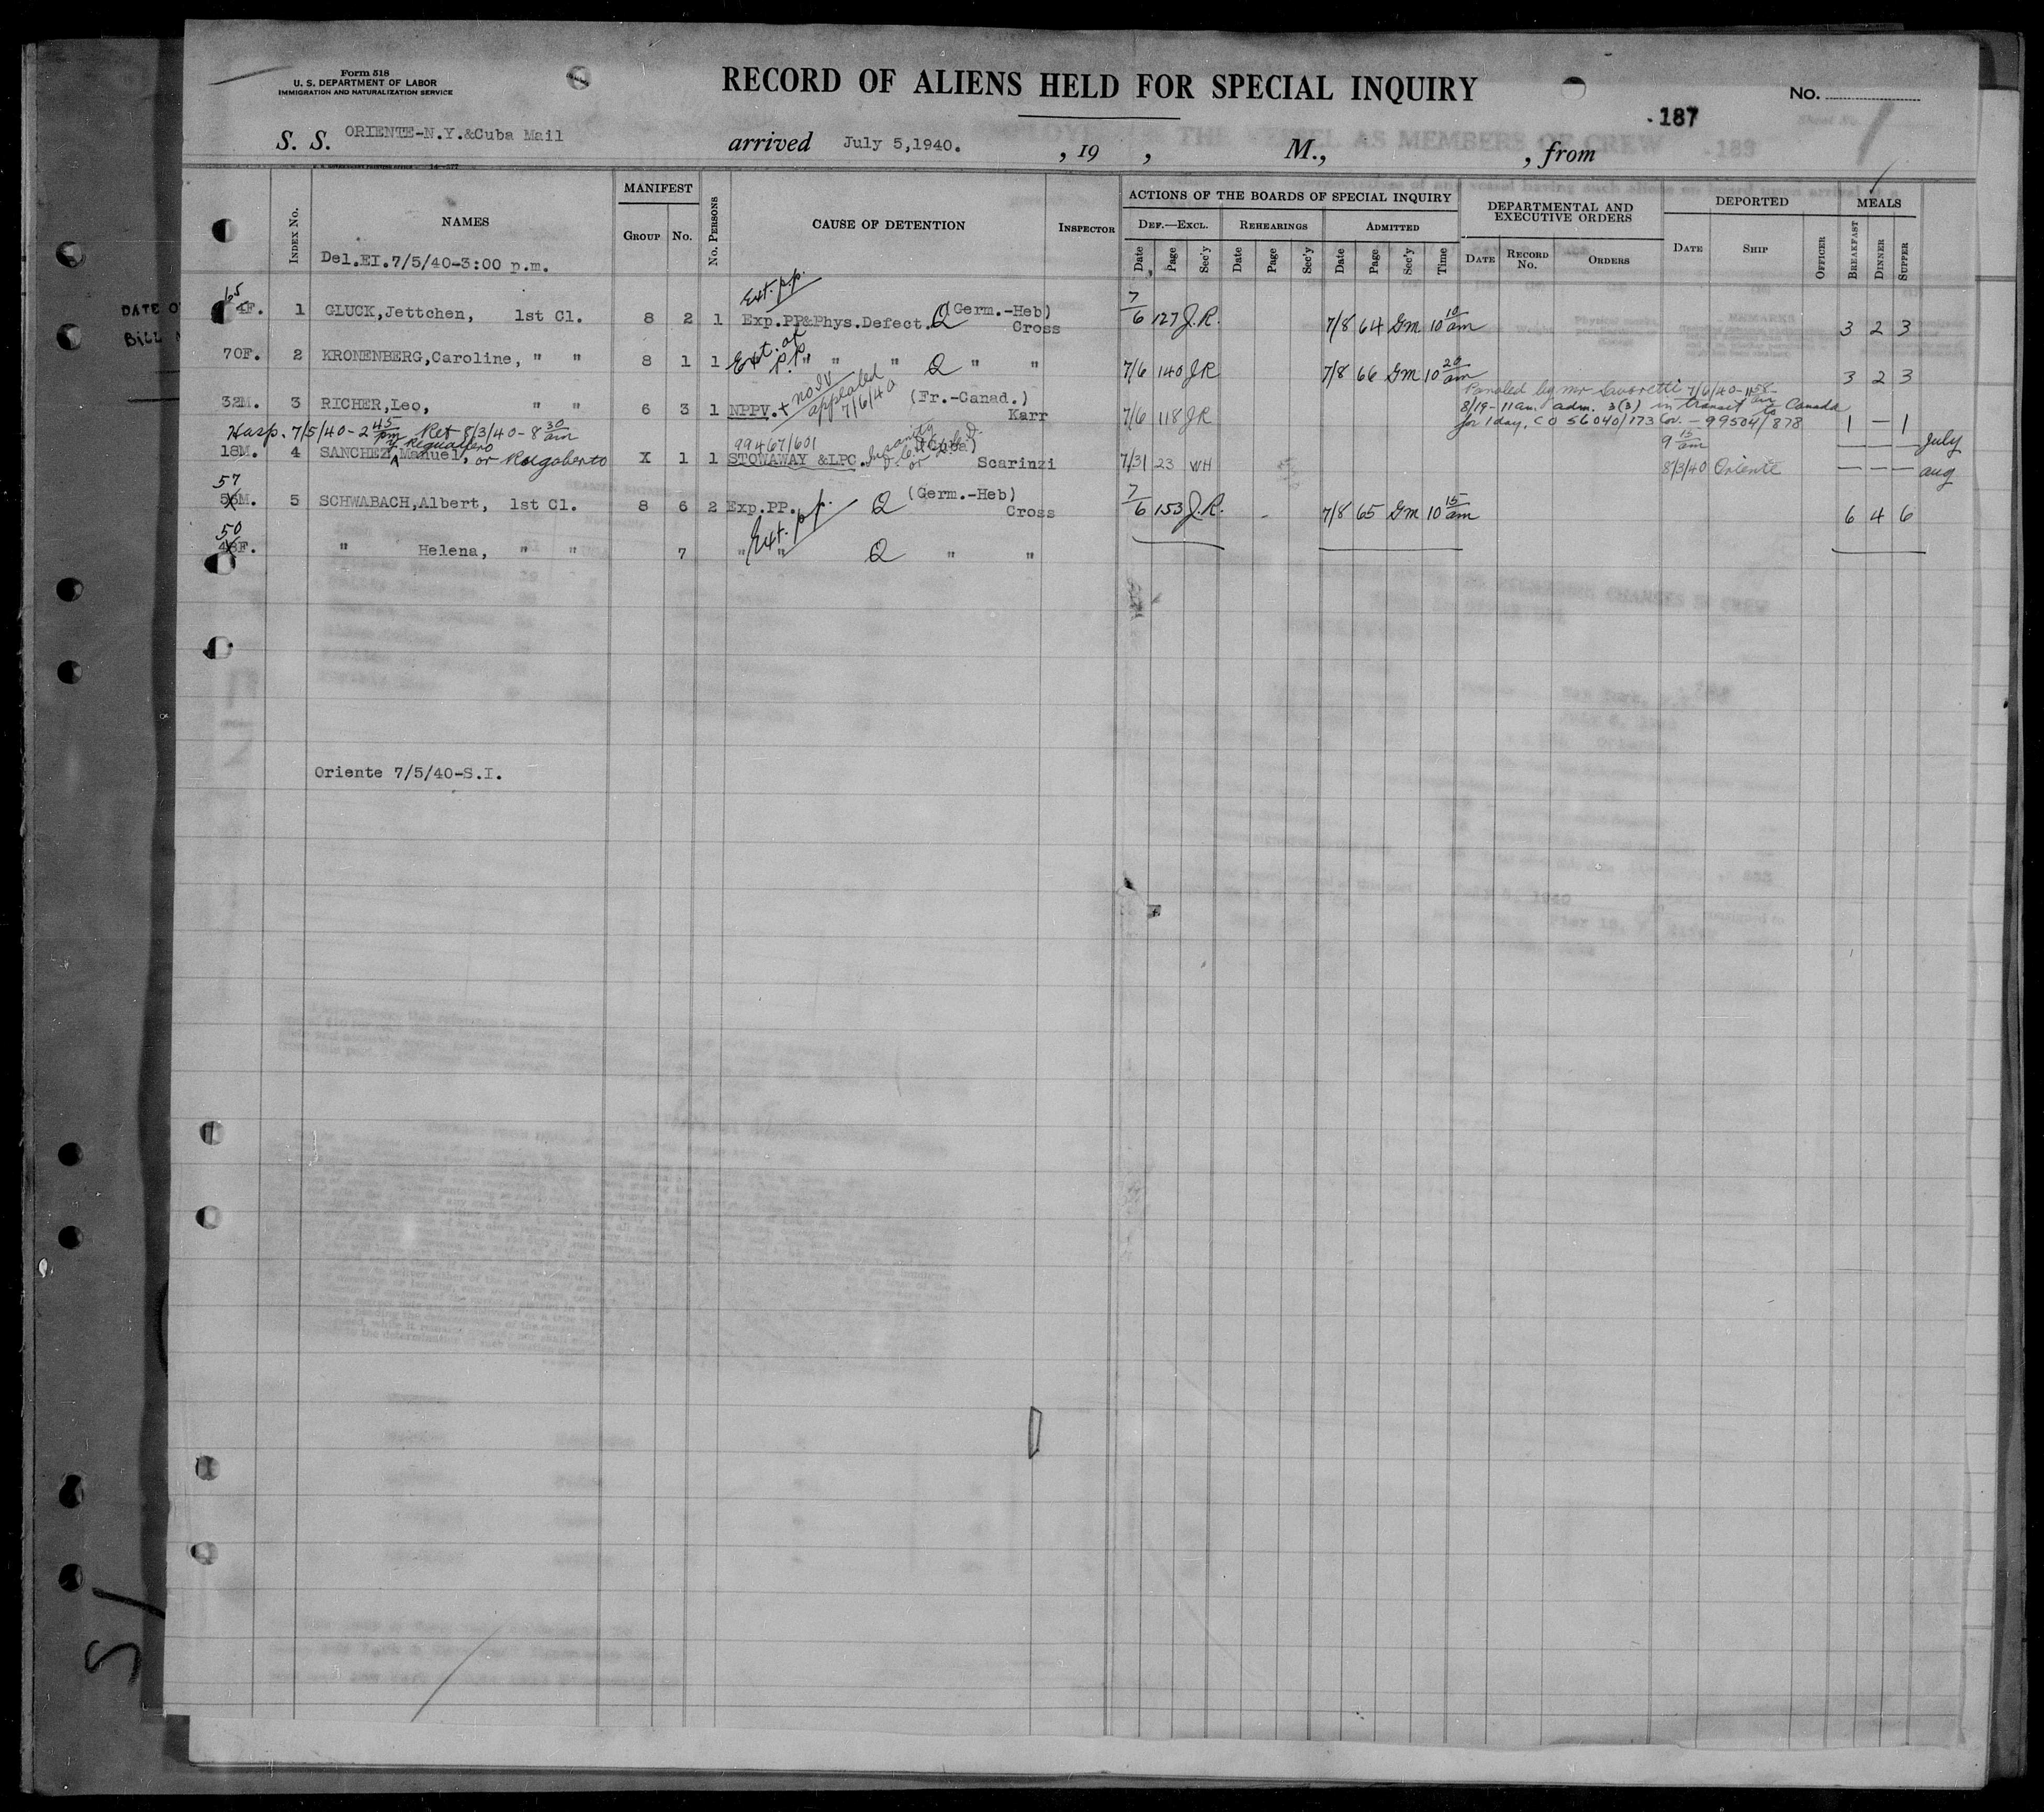 Form 518
U. S. DEPARTMENT OF LABOR
IMMIGRATION AND NATURALIZATION SERVICE
RECORD OF ALIENS HELD FOR SPECIAL INQUIRY
No.
187
S. S. ORIENTE-N.Y.&Cuba Mail arrived July 5,1940. , 19 , M., , from
188
DATE O
BILL
INDEX No. NAMES MANIFEST GROUP No. No. PERSONS CAUSE OF DETENTION INSPECTOR ACTIONS OF THE BOARDS OF SPECIAL INQUIRY DEPARTMENTAL AND EXECUTIVE ORDERS DEPORTED MEALS
DEF.—EXCL. REHEARINGS ADMITTED
Date Page Sec'y Date Page Sec'y Date Page Sec'y Time DATE RECORD No. ORDERS DATE SHIP OFFICER BREAKFAST DINNER SUPPER
Del.EI.7/5/40-3:00 p.m.
Ext. p.p.
65 F. 1 GLUCK,Jettchen, 1st Cl. 8 2 1 Exp.PP&Phys.Defect. Q (Germ.-Heb) Cross 7/6 127 J.R. 7/8 64 GM 10 10 am 3 2 3
70F. 2 KRONENBERG,Caroline, " " 8 1 1 Ext. of p.p. " " " Q " " 7/6 140 JR 7/8 66 GM 10 20 am 3 2 3
32M. 3 RICHER,Leo, " " 6 3 1 NPPV. + no IV appealed 7/6/40 (Fr.-Canad.) Karr 7/6 118 JR Paroled by Mr Savoretti 7/6/40-1158 am
8/19-11am. adm. 3(3) in transit to Canada
for 1 day. CO 56040/173 Cov. - 99504/878 1 — 1
Hosp. 7/5/40-2 45 pm Ret 8/3/40-8 30 am
18M. 4 SANCHEZ, Manuel, or Rugoberto X 1 1 99467/601 STOWAWAY &LPC. Insanity (Cuba) Scarinzi 7/31 23 WH 9 15 am 8/3/40 Oriente — — — July
— — — aug
57
56M. 5 SCHWABACH,Albert, 1st Cl. 8 6 2 Exp.PP. Q (Germ.-Heb) Cross 7/6 153 J.R. 7/8 65 GM 10 15 am 6 4 6
50
48F. " Helena, " " 7 " " Ext. p.p. Q " "
Oriente 7/5/40-S.I.